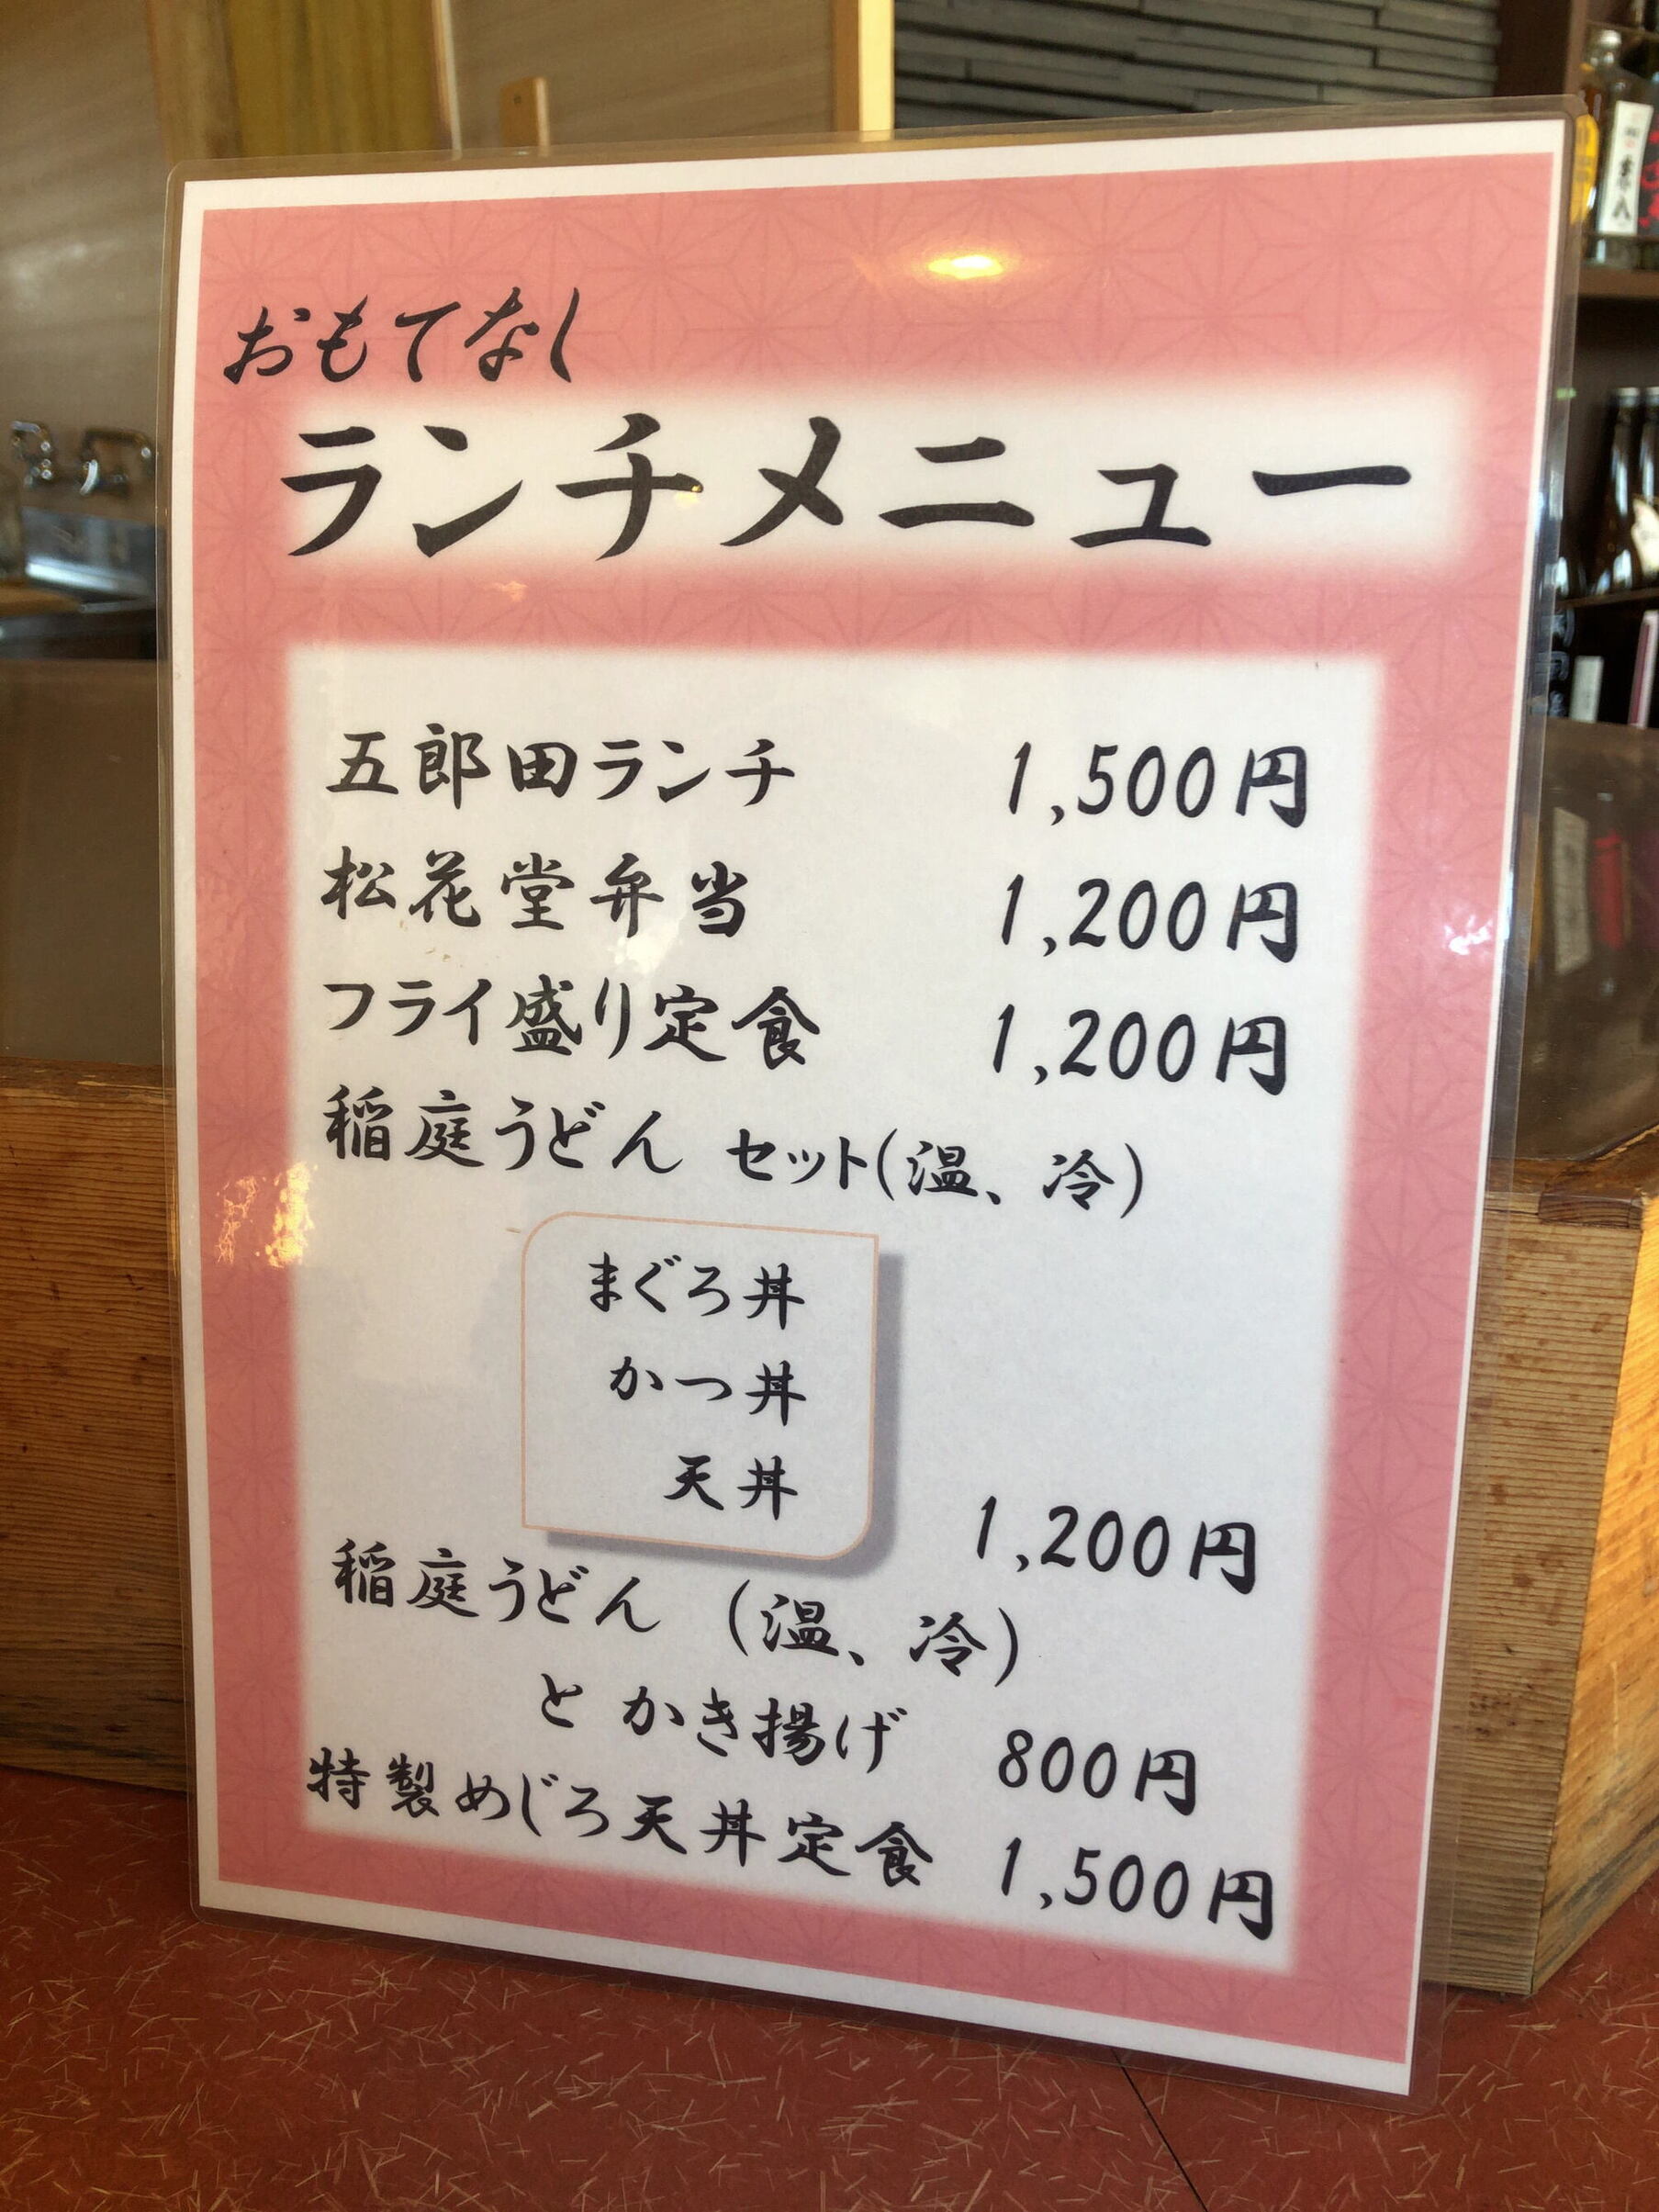 おもてなし
ランチメニュー
五郎田ランチ 1,500円
松花堂弁当 1,200円
フライ盛り定食 1,200円
稲庭うどん セット(温、冷)
まぐろ丼
かつ丼
天丼
1,200円
稲庭うどん (温、冷)
と かき揚げ 800円
特製めじろ天丼定食 1,500円